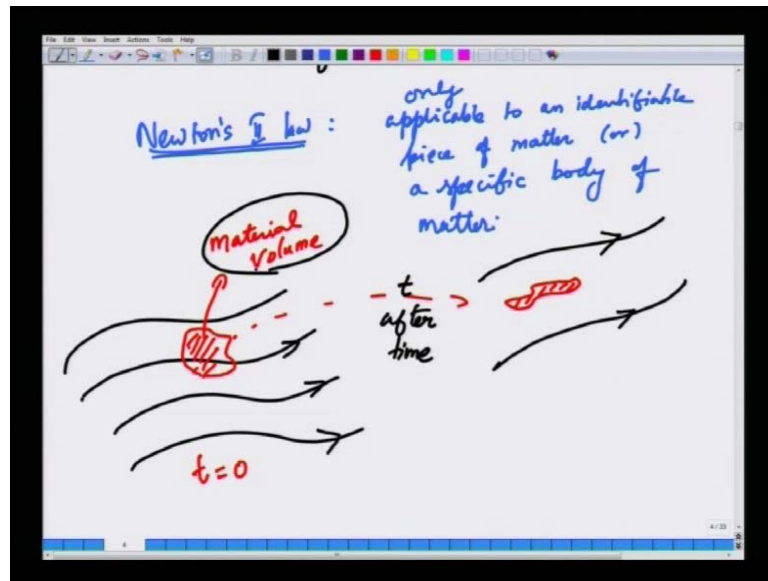 File Edit View Insert Actions Tools Help
Newton's II law :
only
applicable to an identifiable
piece of matter (or)
a specific body of
matter.
material
volume
t
after
time
t = 0
4
4 / 33